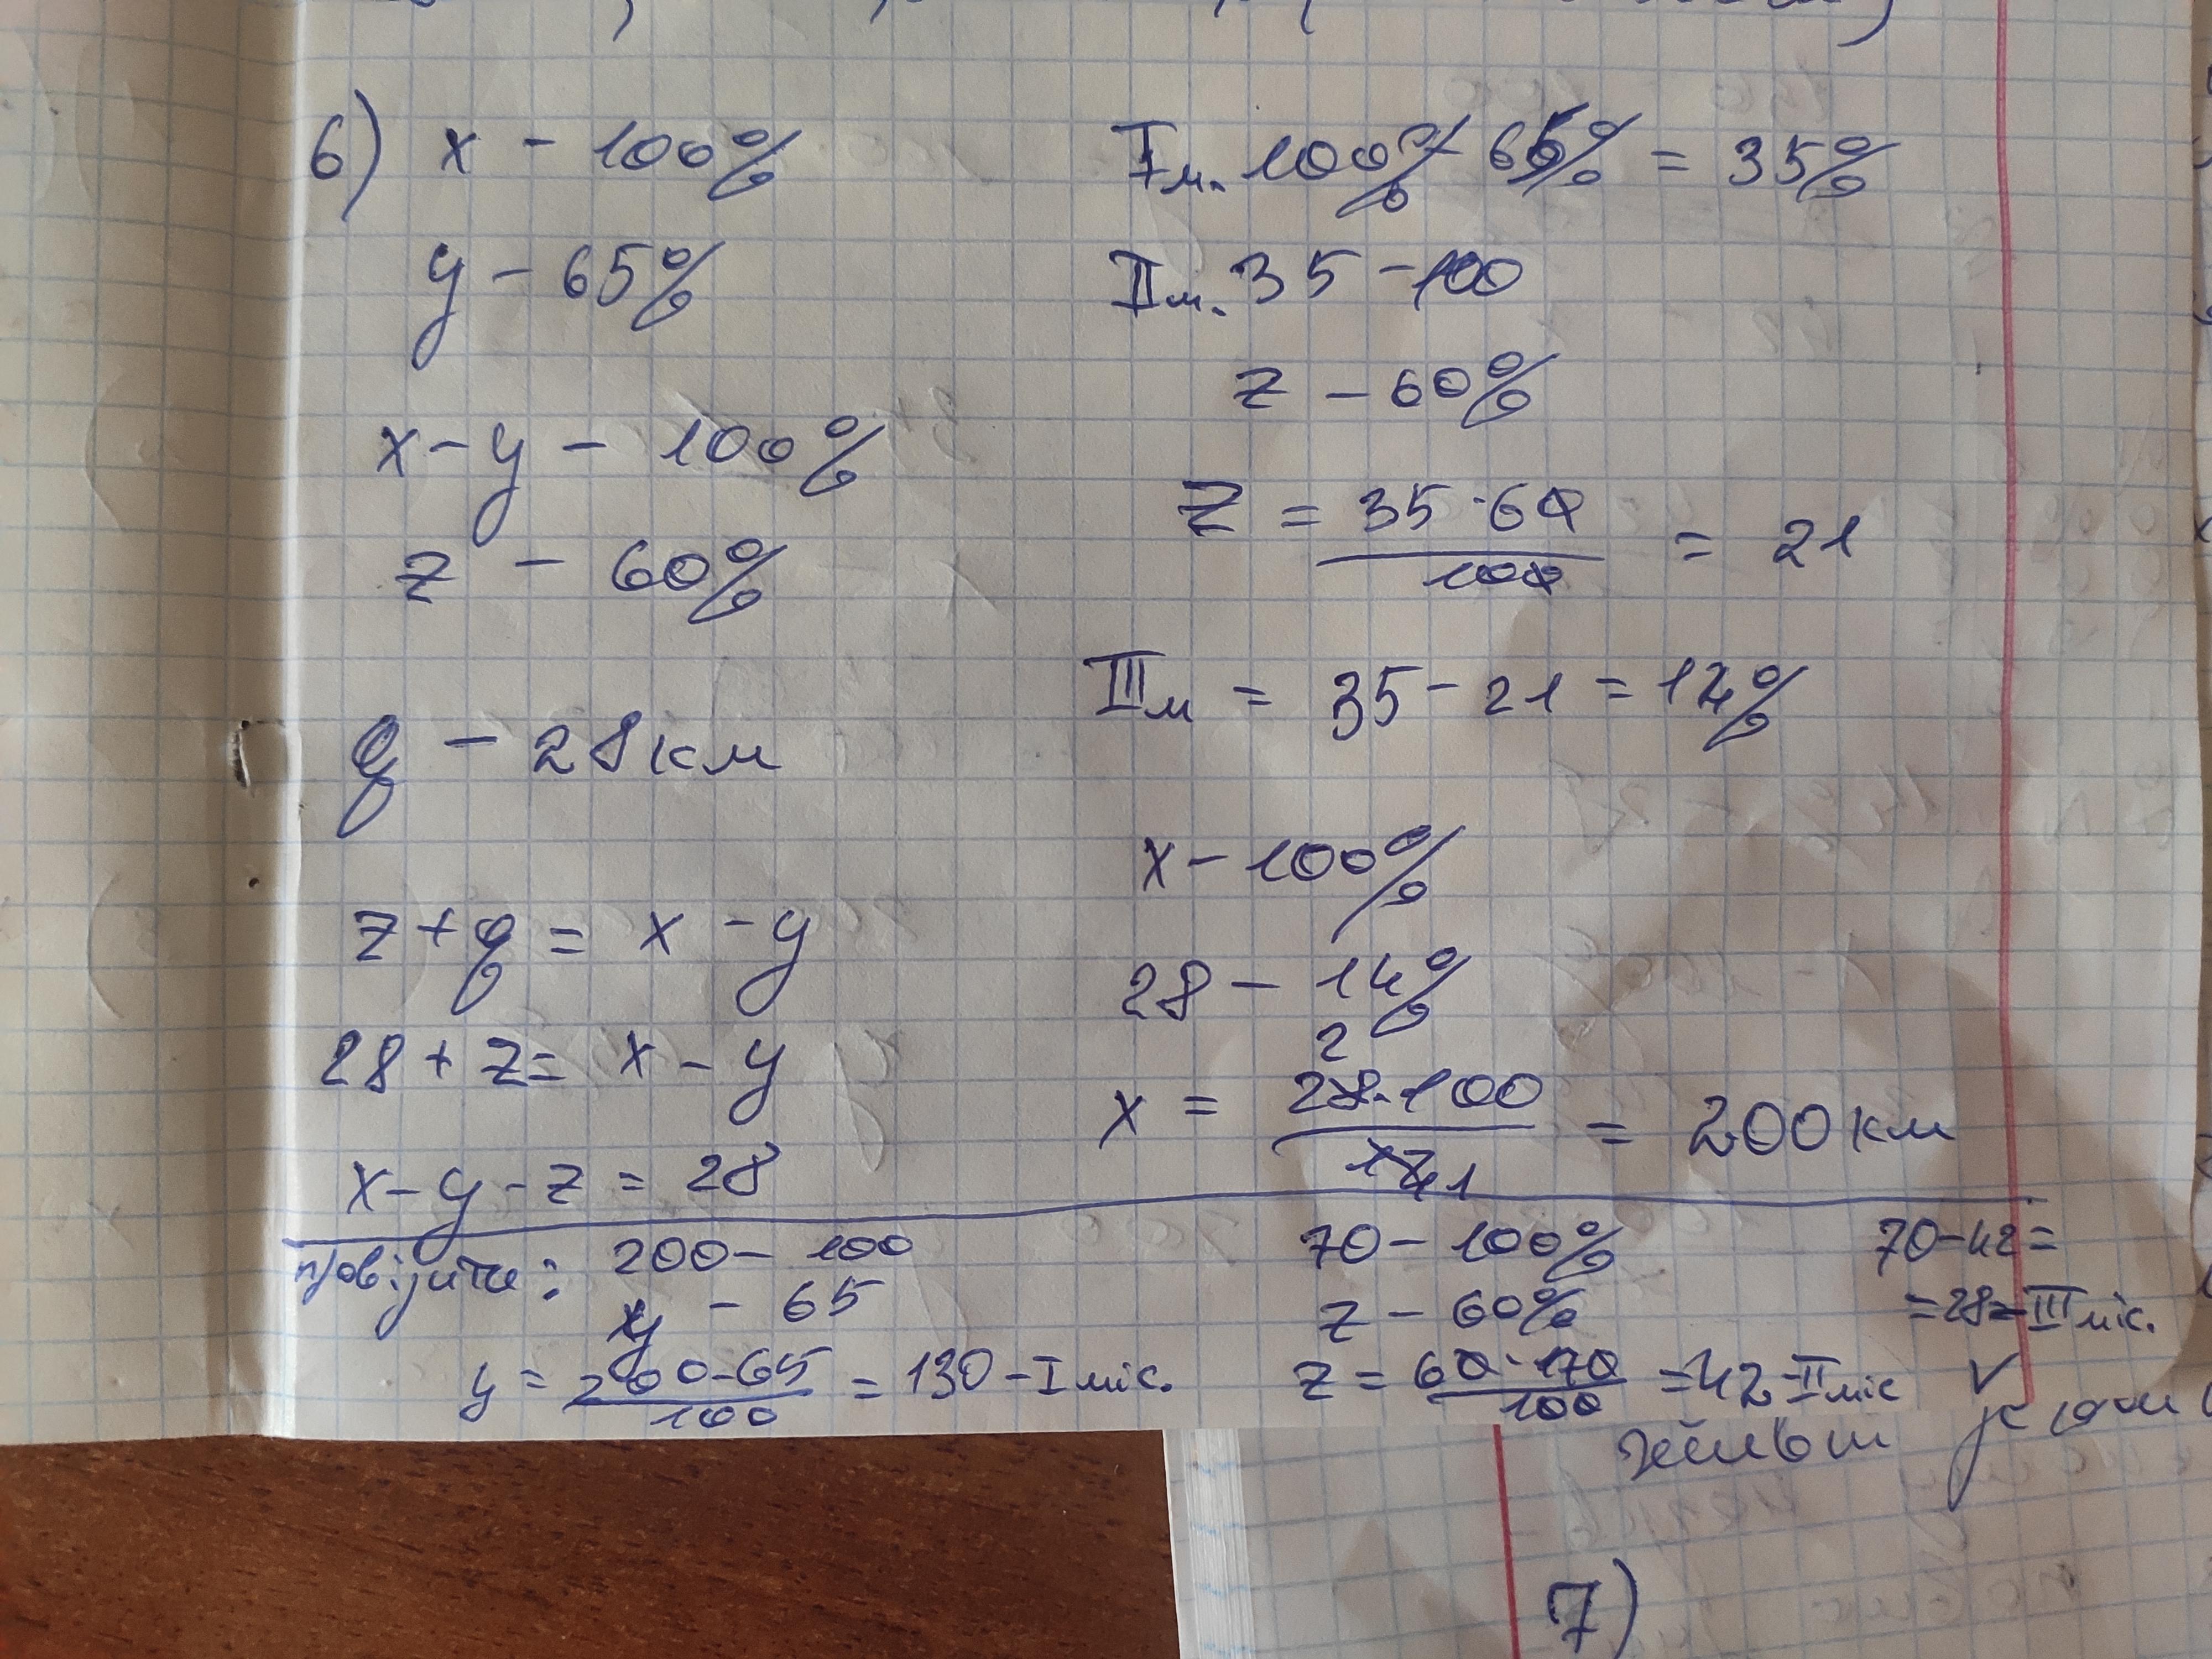 6) x - 100%
y - 65%
x - y - 100%
z - 60%
q - 28 км
z + q = x - y
28 + z = x - y
x - y - z = 28
I м. 100% - 65% = 35%
II м. 35 - 100
z - 60%
z = 35 · 60 / 100 = 21
III м = 35 - 21 = 14%
x - 100%
28 - 14%
2
x = 28 · 100 / 14 1 = 200 км
200 - 100
y - 65
y = 200 - 65 / 100 = 130 - I міс.
70 - 100%
z - 60%
z = 60 · 70 / 100 = 42 - II міс
70 - 42 =
= 28 = III міс.
7)